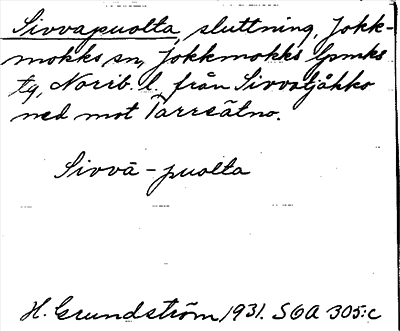 Sivvapuolta, sluttning, Jokk-
mokks sn, Jokkmokks lpmks
tg, Norrb. l. från Sivvatjåkko
ned mot Tarreätno.
Sivvā-puolta
H. Grundström, 1931. SOA 305:c